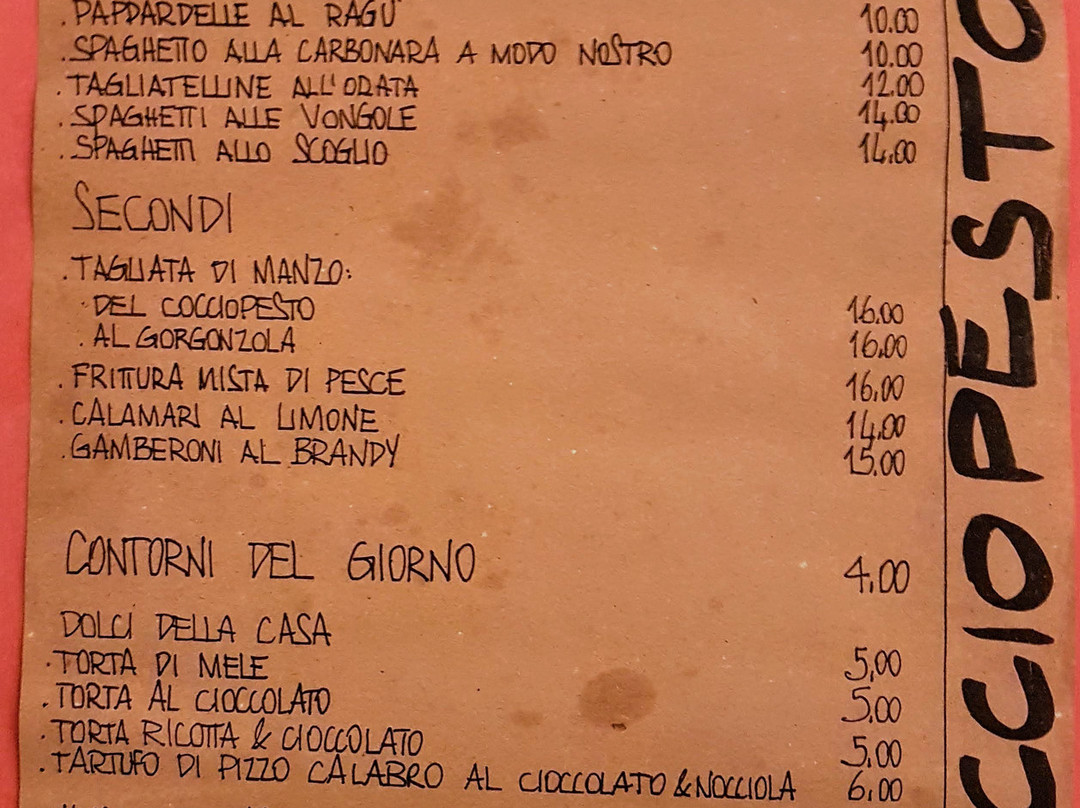 .PAPPARDELLE AL RAGU' 10.00
.SPAGHETTO ALLA CARBONARA A MODO NOSTRO 10.00
.TAGLIATELLINE ALL'ORATA 12.00
.SPAGHETTI ALLE VONGOLE 14.00
.SPAGHETTI ALLO SCOGLIO 14.00
SECONDI
.TAGLIATA DI MANZO:
.DEL COCCIOPESTO 16.00
.AL GORGONZOLA 16.00
.FRITTURA MISTA DI PESCE 16,00
.CALAMARI AL LIMONE 14,00
.GAMBERONI AL BRANDY 15.00
CONTORNI DEL GIORNO 4,00
DOLCI DELLA CASA
.TORTA DI MELE 5,00
.TORTA AL CIOCCOLATO 5.00
.TORTA RICOTTA & CIOCCOLATO 5,00
.TARTUFO DI PIZZO CALABRO AL CIOCCOLATO & NOCCIOLA 6,00
CCIO PESTO